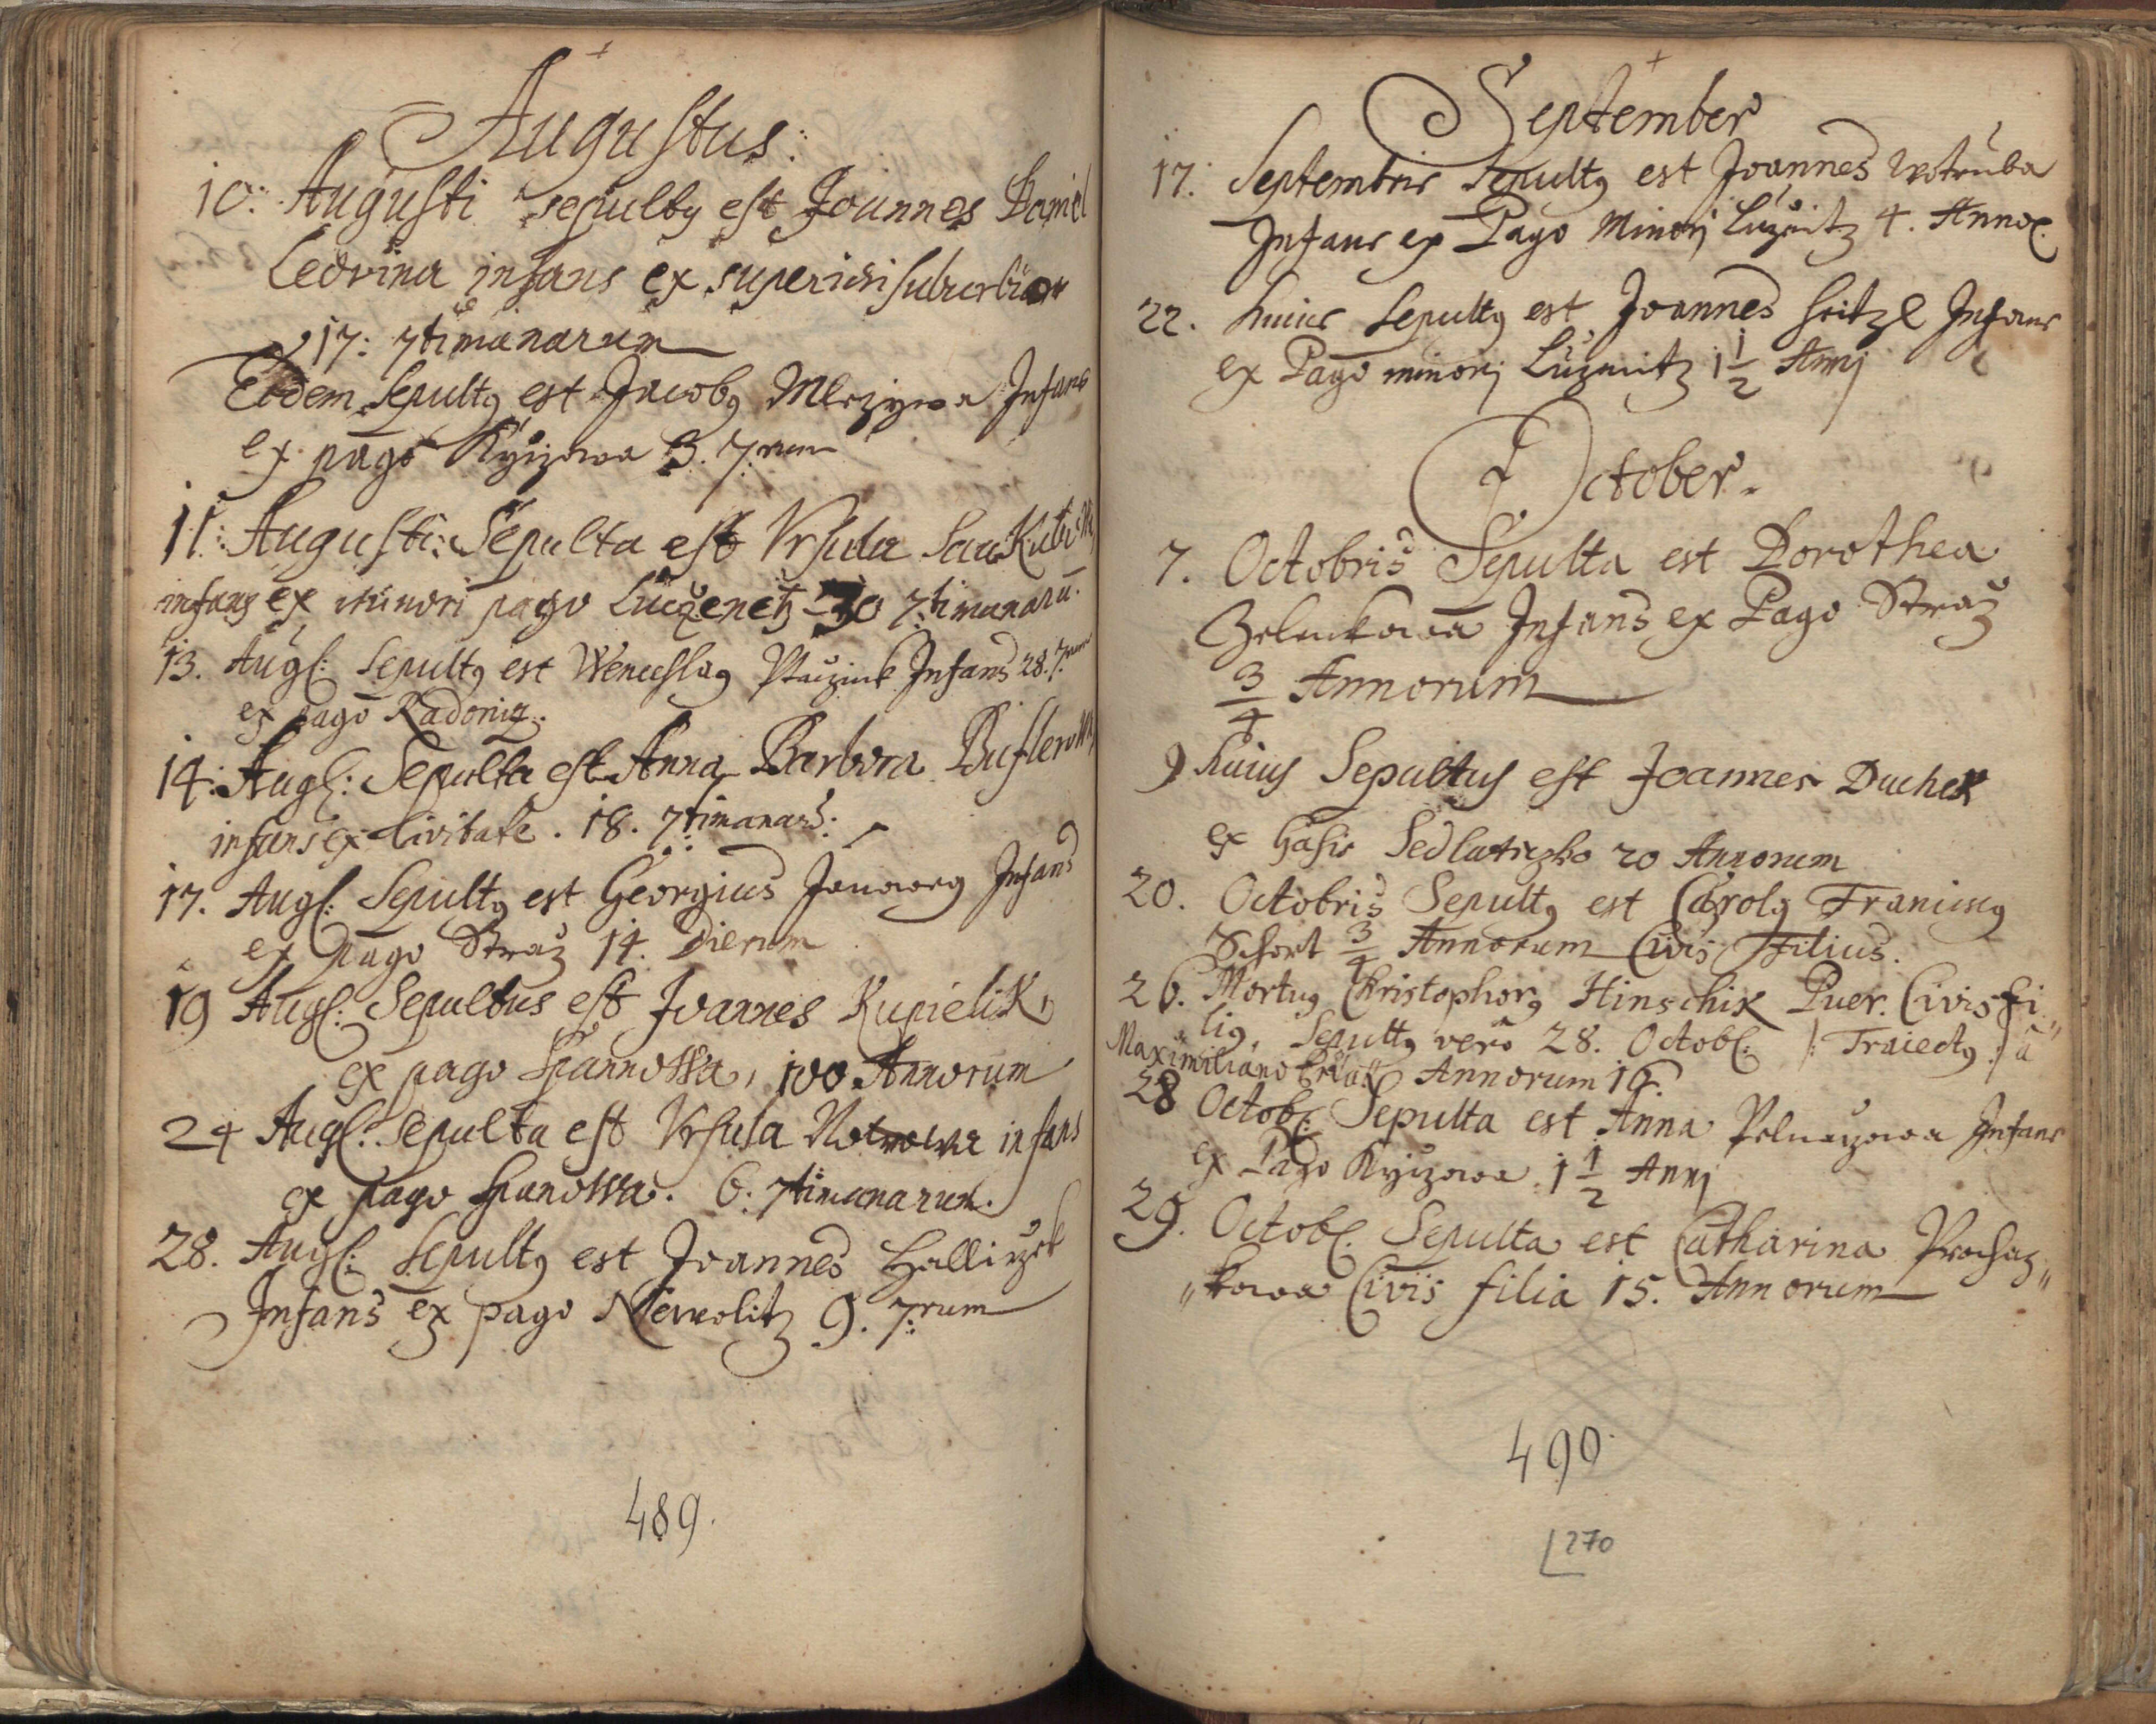 Augustus:
10: Augusti sepultꝯ est Joannes Daniel
Ledvina infans ex superiori suburbio
17: 7timanarum
Eodem Sepultꝯ est Jacobꝯ Mlczywa Infans
ex pago Kyizowa 3. 7.rum
11: Augusti: Sepulta est Vrsula
infans ex minori pago Luczenetz 30 7timanarū.
13. Augl: Sepultꝯ est Wenceslaꝯ Ptaczink Infans 28. 7.rum
ex pago Radoniz.
14: Augl: Sepulta est Anna Barbora
infans ex Civitate. 18. 7timanarū:
17. Augl: Sepultꝯ est Georgius Infans
ex pago Straz 14. Dierum
19 Augl: Sepultus est Joannes Kupielik,
ex pago Spannowa, 100 Annorum
24 Augl: Sepulta est Vrsula infans
ex pago Spanowa. 6. 7timanarum.
28. Augl: Sepultꝯ est Joannes Halliczek
Infans ex pago Newolitz 9. 7:rum
489.
September
17. Septembris Sepultꝯ est Joannes Wotruba
Infans ex Pago Minorj Luznitz 4. Anno
22. huius Sepultꝯ est Joannes Infans
ex Pago minorj Luznitz 1 1/2 Annj
October.
7. Octobris Sepulta est Dorothea
Zelenkowa Infans ex Pago Straz
3/4 Annorum
9 huius Sepultus est Joannes Duchek
ex Sedlaticzko 20 Annorum
20. Octobris Sepultꝯ est Carolꝯ Franciscꝯ
Schort 3/4 Annorum Civis Filius.
26. Mortuꝯ Christophorꝯ Hinschik Puer. Civis fi„
„liꝯ, Sepultꝯ vero 28. Octobl: /: Traiectꝯ :/ â
Maximiliano Annorum 16.
28 Octobl: Sepulta est Anna Infans
ex Pago Kyizowa 1 1/2 Annj
29. Octobl. Sepulta est Catharina Prochaz„
„kowa Civis filia 15. Annorum
490.
270